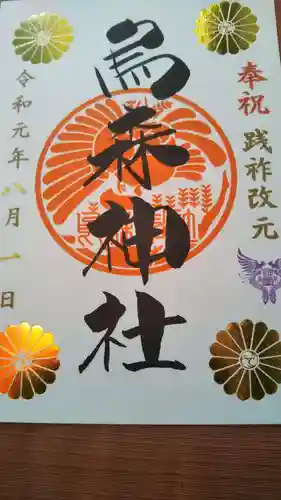 奉祝 践祚改元
烏森神社
令和元年八月一日